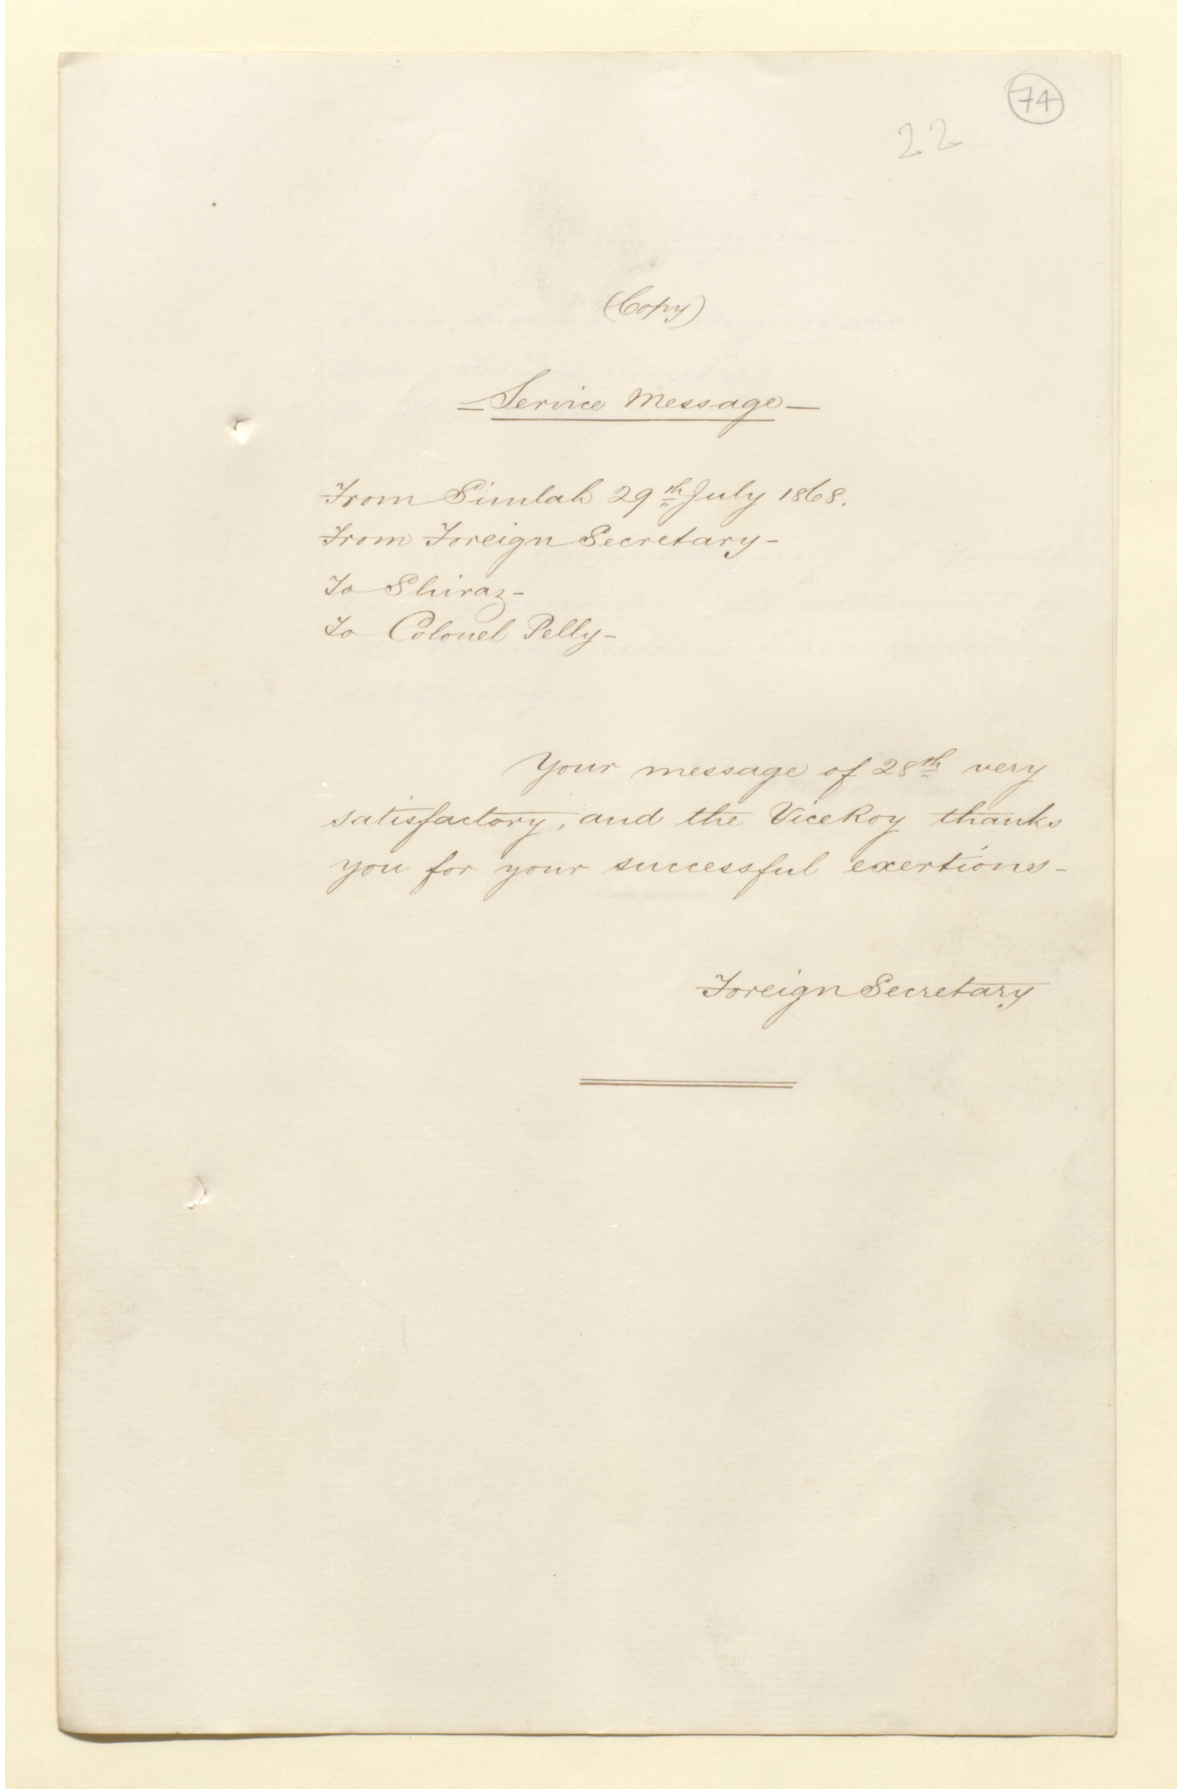 74
22
(Copy)
Service Message —
From Simlah 29th July 1868.
From Foreign Secretary –
To Shiraz –
To Colonel Pelly –
Your message of 28th very
satisfactory, and the ViceRoy thanks
you for your successful exertions –
Foreign Secretary